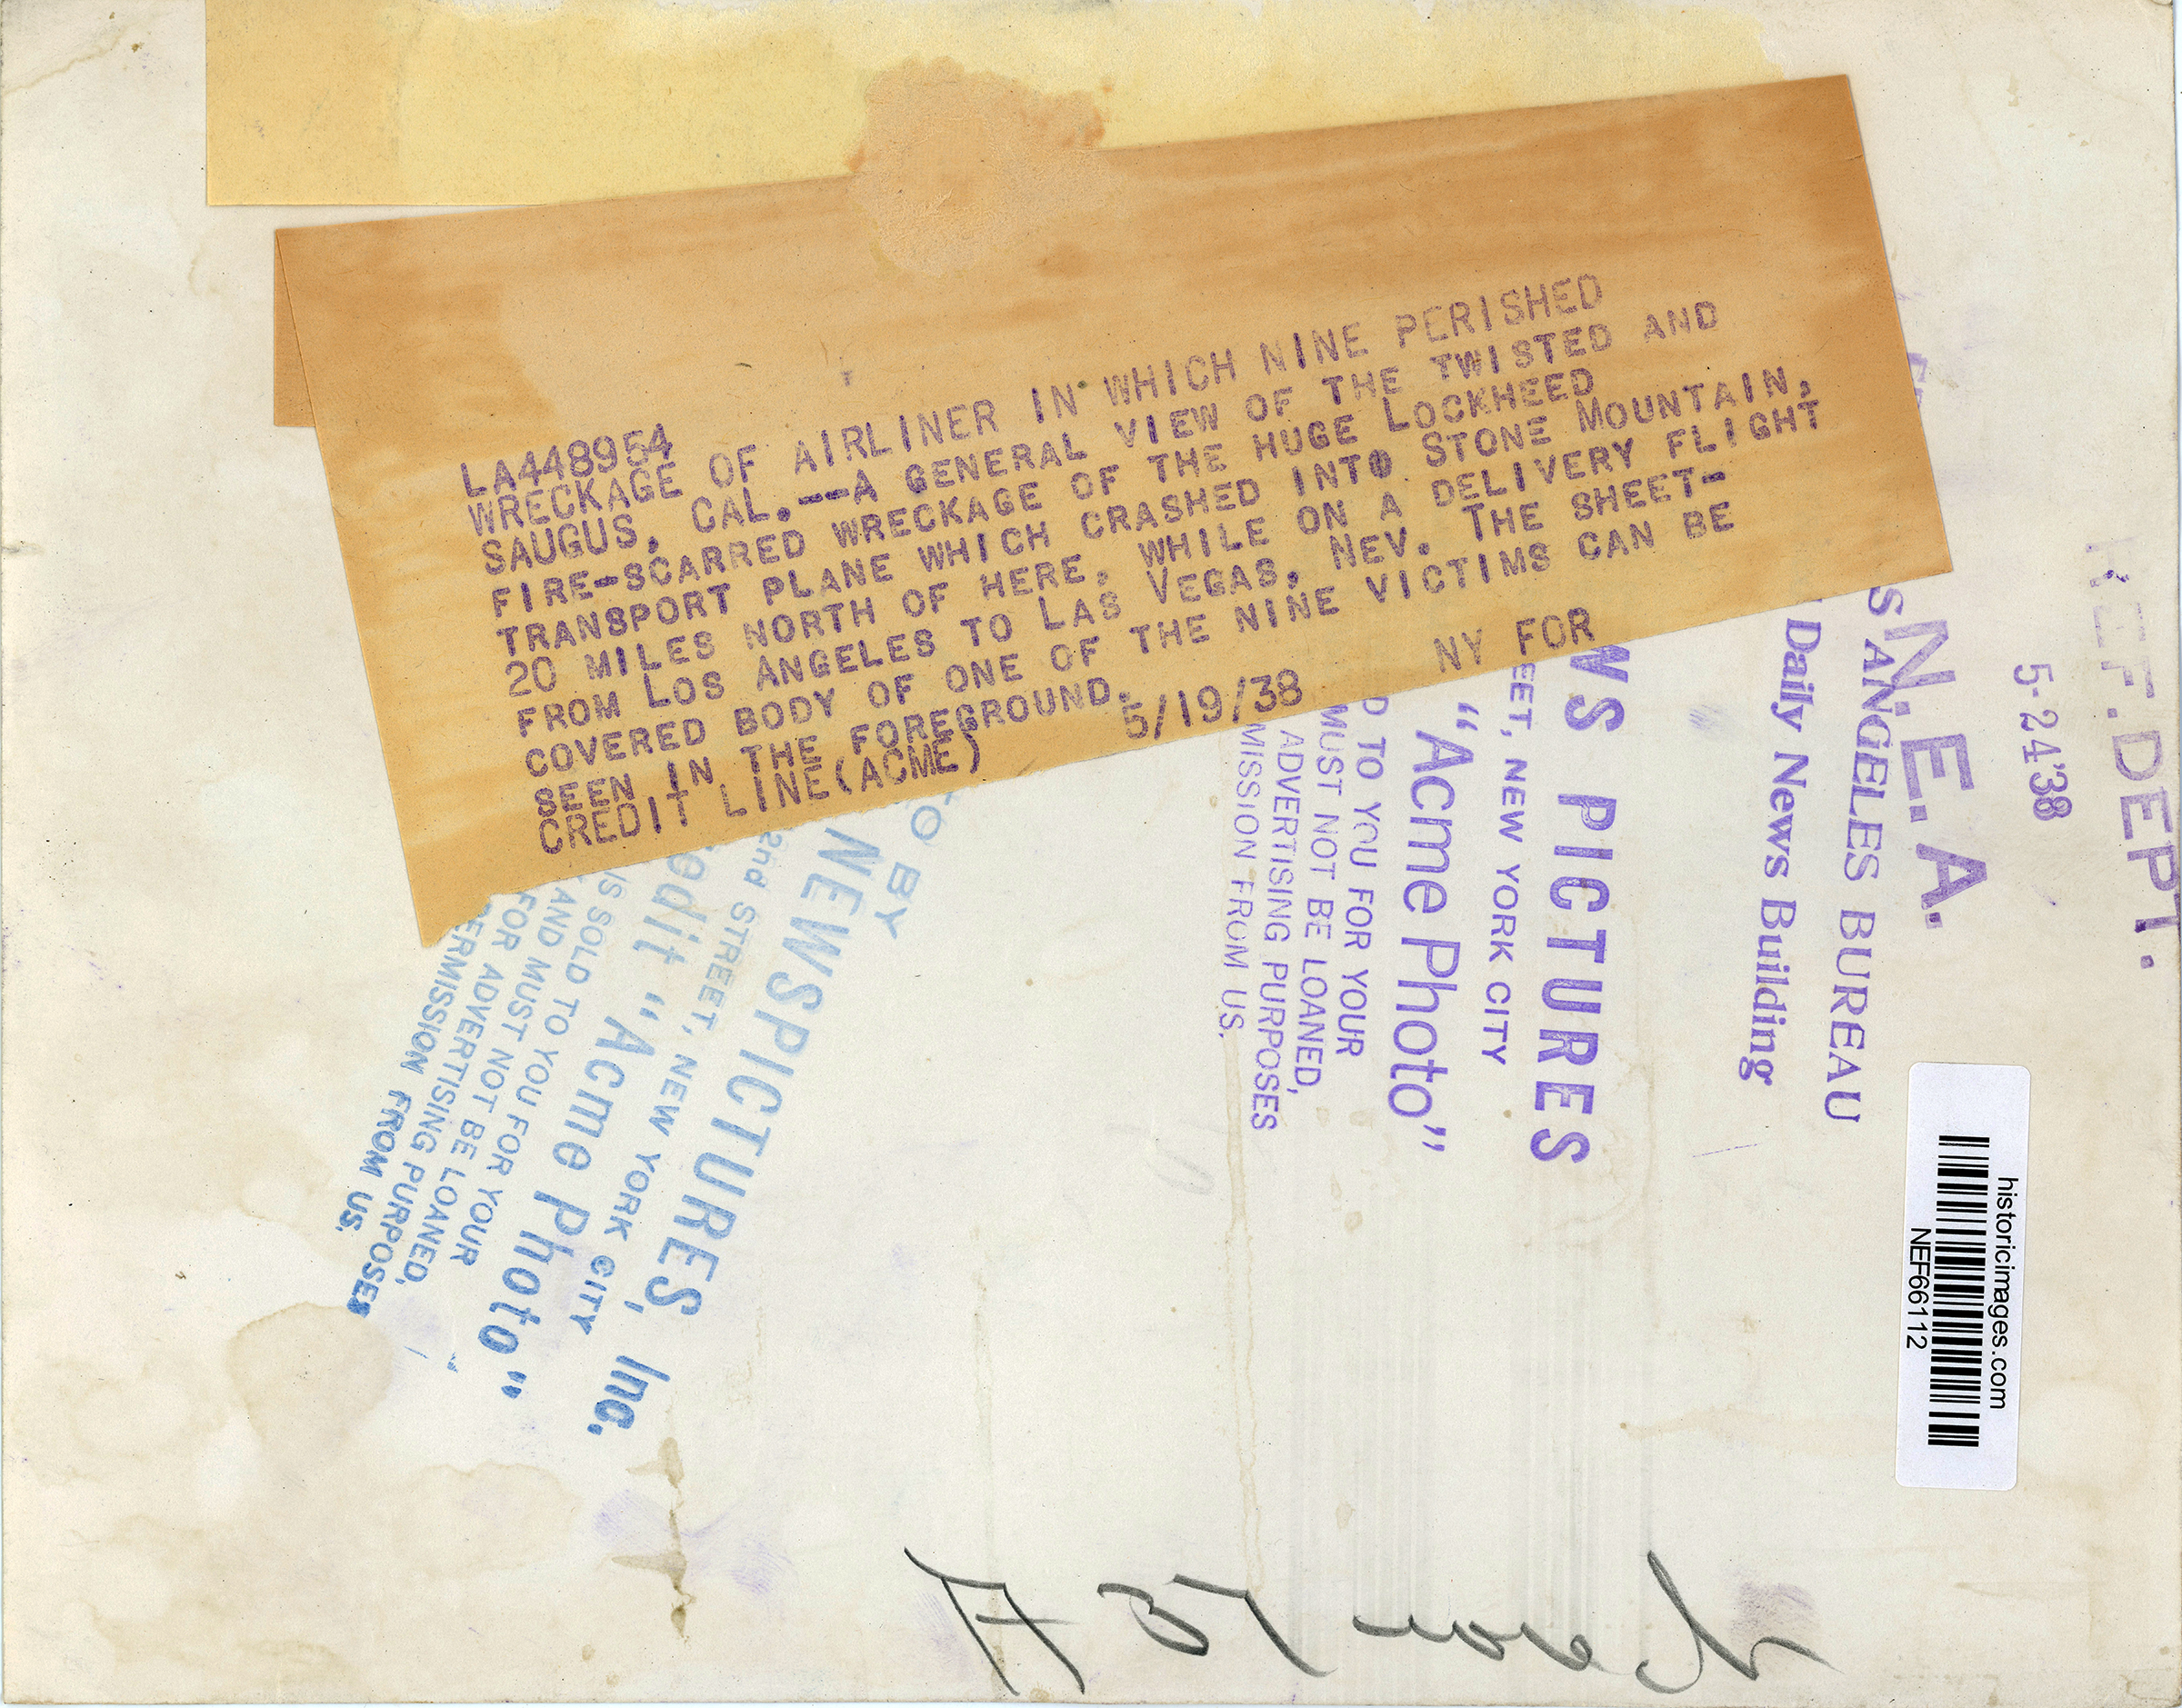 LA448954
WRECKAGE OF AIRLINER IN WHICH NINE PERISHED
SAUGUS, CAL.--A GENERAL VIEW OF THE TWISTED AND
FIRE-SCARRED WRECKAGE OF THE HUGE LOCKHEED
TRANSPORT PLANE WHICH CRASHED INTO STONE MOUNTAIN,
20 MILES NORTH OF HERE, WHILE ON A DELIVERY FLIGHT
FROM LOS ANGELES TO LAS VEGAS, NEV. THE SHEET-
COVERED BODY OF ONE OF THE NINE VICTIMS CAN BE
SEEN IN THE FOREGROUND.
CREDIT LINE (ACME) 5/19/38 NY FOR
REF. DEPT.
5-24'38
N.E.A.
S ANGELES BUREAU
Daily News Building
WS PICTURES
EET, NEW YORK CITY
"Acme Photo"
D TO YOU FOR YOUR
MUST NOT BE LOANED,
ADVERTISING PURPOSES
MISSION FROM US.
TO BY
NEWSPICTURES, Inc.
2nd STREET, NEW YORK CITY
edit "Acme Photo"
IS SOLD TO YOU FOR YOUR
AND MUST NOT BE LOANED,
FOR ADVERTISING PURPOSES
ERMISSION FROM US.
historicimages.com
NEF66112